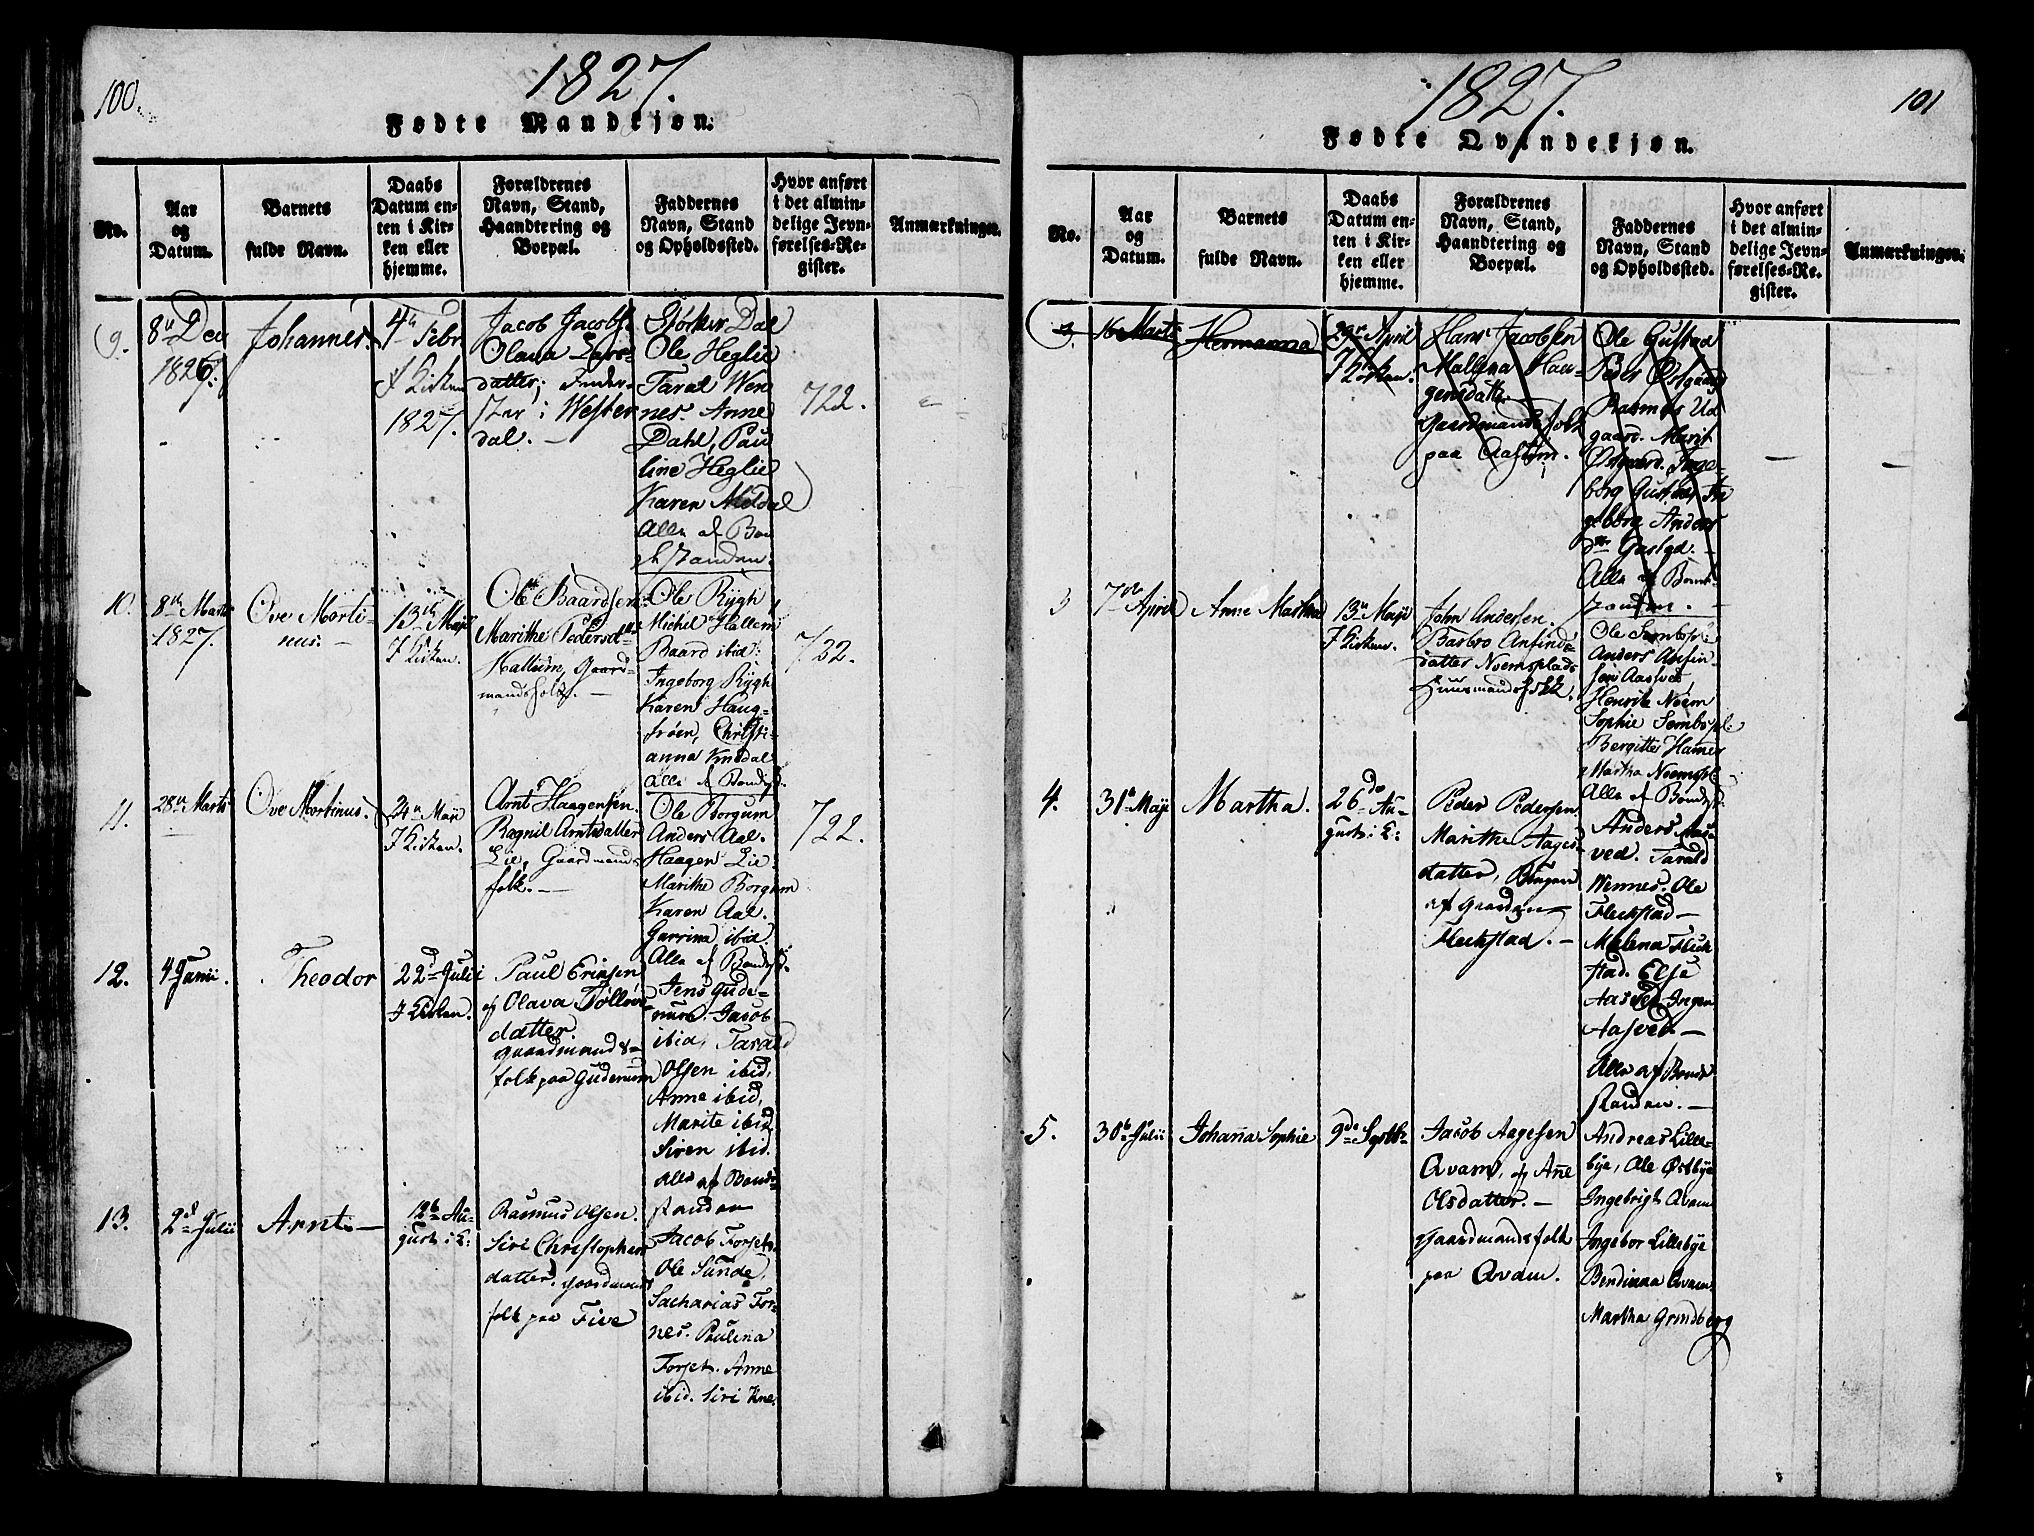 100.
1827.
Fødte Mandkjøn.
No.
Aar
og
Datum.
Barnets
fulde Navn.
Daabs
Datum en-
ten i Kir-
ken eller
hjemme.
Forældrenes
Navn, Stand,
Haandtering og
Boepæl.
Faddernes
Navn, Stand
og Opholdssted.
Hvor anført
i det almin-
delige Jevn-
førelses-Re-
gister.
Anmærkninger.
9.
8de Dec
1826.
Johannes.
4de Febr
i Kirken
1827.
Jacob Jacobs.
Olava Lars-
datter, Inder-
ster i Wester
dal. —
Ole Heglie
Taral Wen
nes. Anne
Dahl, Pau
line Heglie
Karen Meldal
Alle af Bon
destanden.
722.
10.
8de Marts
1827.
Ove Morti-
nus. —
13de Maji
I Kirken.
Ole Baardsen
Marithe Pedersdtr
Hallem, Gaard-
mandsfolk. —
Ole Rygh
Michel Hallem
Baard ibid:
Ingeborg Rygh
Karen Haug-
Christi-
anna
Alle af Bondest.
732.
11.
28de Marts
Ove Mortinus.
24de Maji
I Kirken.
Arnt Haagensen
Ragnil Arntsdatter
Lie, Gaardmands
folk. —
Ole Borgum
Anders Aal.
Haagen Lie.
Marithe Borgum
Karen Aal.
ibid.
Alle af Bondest.
722.
12.
4 Junii.
Theodor
22de Julii
I Kirken.
Paul Ericsen
og Olava Tølløvs-
datter
gaardmands-
folk paa Gudenum
Jens Gude-
num. Jacob
ibid, Tarald
Olsen ibid,
Anne ibid,
Marite ibid
Siren ibid.
Alle af Bonde-
standen
13.
2de Julii
Arnt —
12te Au-
gusti i K:
Rasmus Olsen.
Siri Christophers
datter, gaardmands
folk paa Five
Jacob Forset.
Ole Sunde,
Sacharias For-
nes. Paulina
Forset. Anne
ibid. Siri Kne.
101
1827.
Fødte Qvindekjøn.
No.
Aar
og
Datum.
Barnets
fulde Navn.
Daabs
Datum en-
ten i Kir-
ken eller
hjemme.
Forældrenes
Navn, Stand,
Haandtering og
Boepæl.
Faddernes
Navn, Stand
og Opholdssted.
Hvor anført
i det almin-
delige Jevn-
førelses-Re-
gister.
Anmærkninger.
3.
16 Marts
Hermanna
29de April
I Kirken.
Hans Jacobsen
Mallena Hau-
gensdatter
Gaardmandsfolk
paa
Ole Gustad
Peder Østgaard
Rasmus Ud
gaard. Marit
Østgaard. Inge-
borg Gustad In
geborg Anders
dtr Gustad. —
Alle af Bonde-
standen. —
3
7de April
Anne Martha
13de Maji
I Kirken.
John Andersen.
Barbro Anfinds-
datter Noemsplads
Huusmandsfolk.
Ole Sembspl.
Anders Anfin-
sen Aasved,
Henrik Noem
Sophie Sembspl.
Bergitte Hamer
Martha Noemspl.
Alle af Bondest.
4.
31te Maji
Martha.
26de Au-
gusti i K:
Peder Pedersen
Marithe Aages-
datter,
af Gaarden
Fleckstad. —
Anders Aas-
ved. Tarald
Wennes. Ole
Fleckstad —
Malena Fleck
stad. Else
Aasved Ingen
Aasved —
Alle af Bonde
standen. —
5.
30te Julii
Johanna Sophie
9de Septbr
Jacob Aagesen
Qvam, og Ane
Olsdatter. —
Gaardmandsfolk
paa Qvam.
Andreas Lille-
bye, Ole Østbye
Ingebrigt Qvam
Ingebor Lillebye
Berdinna Qvam
Martha Grindberg